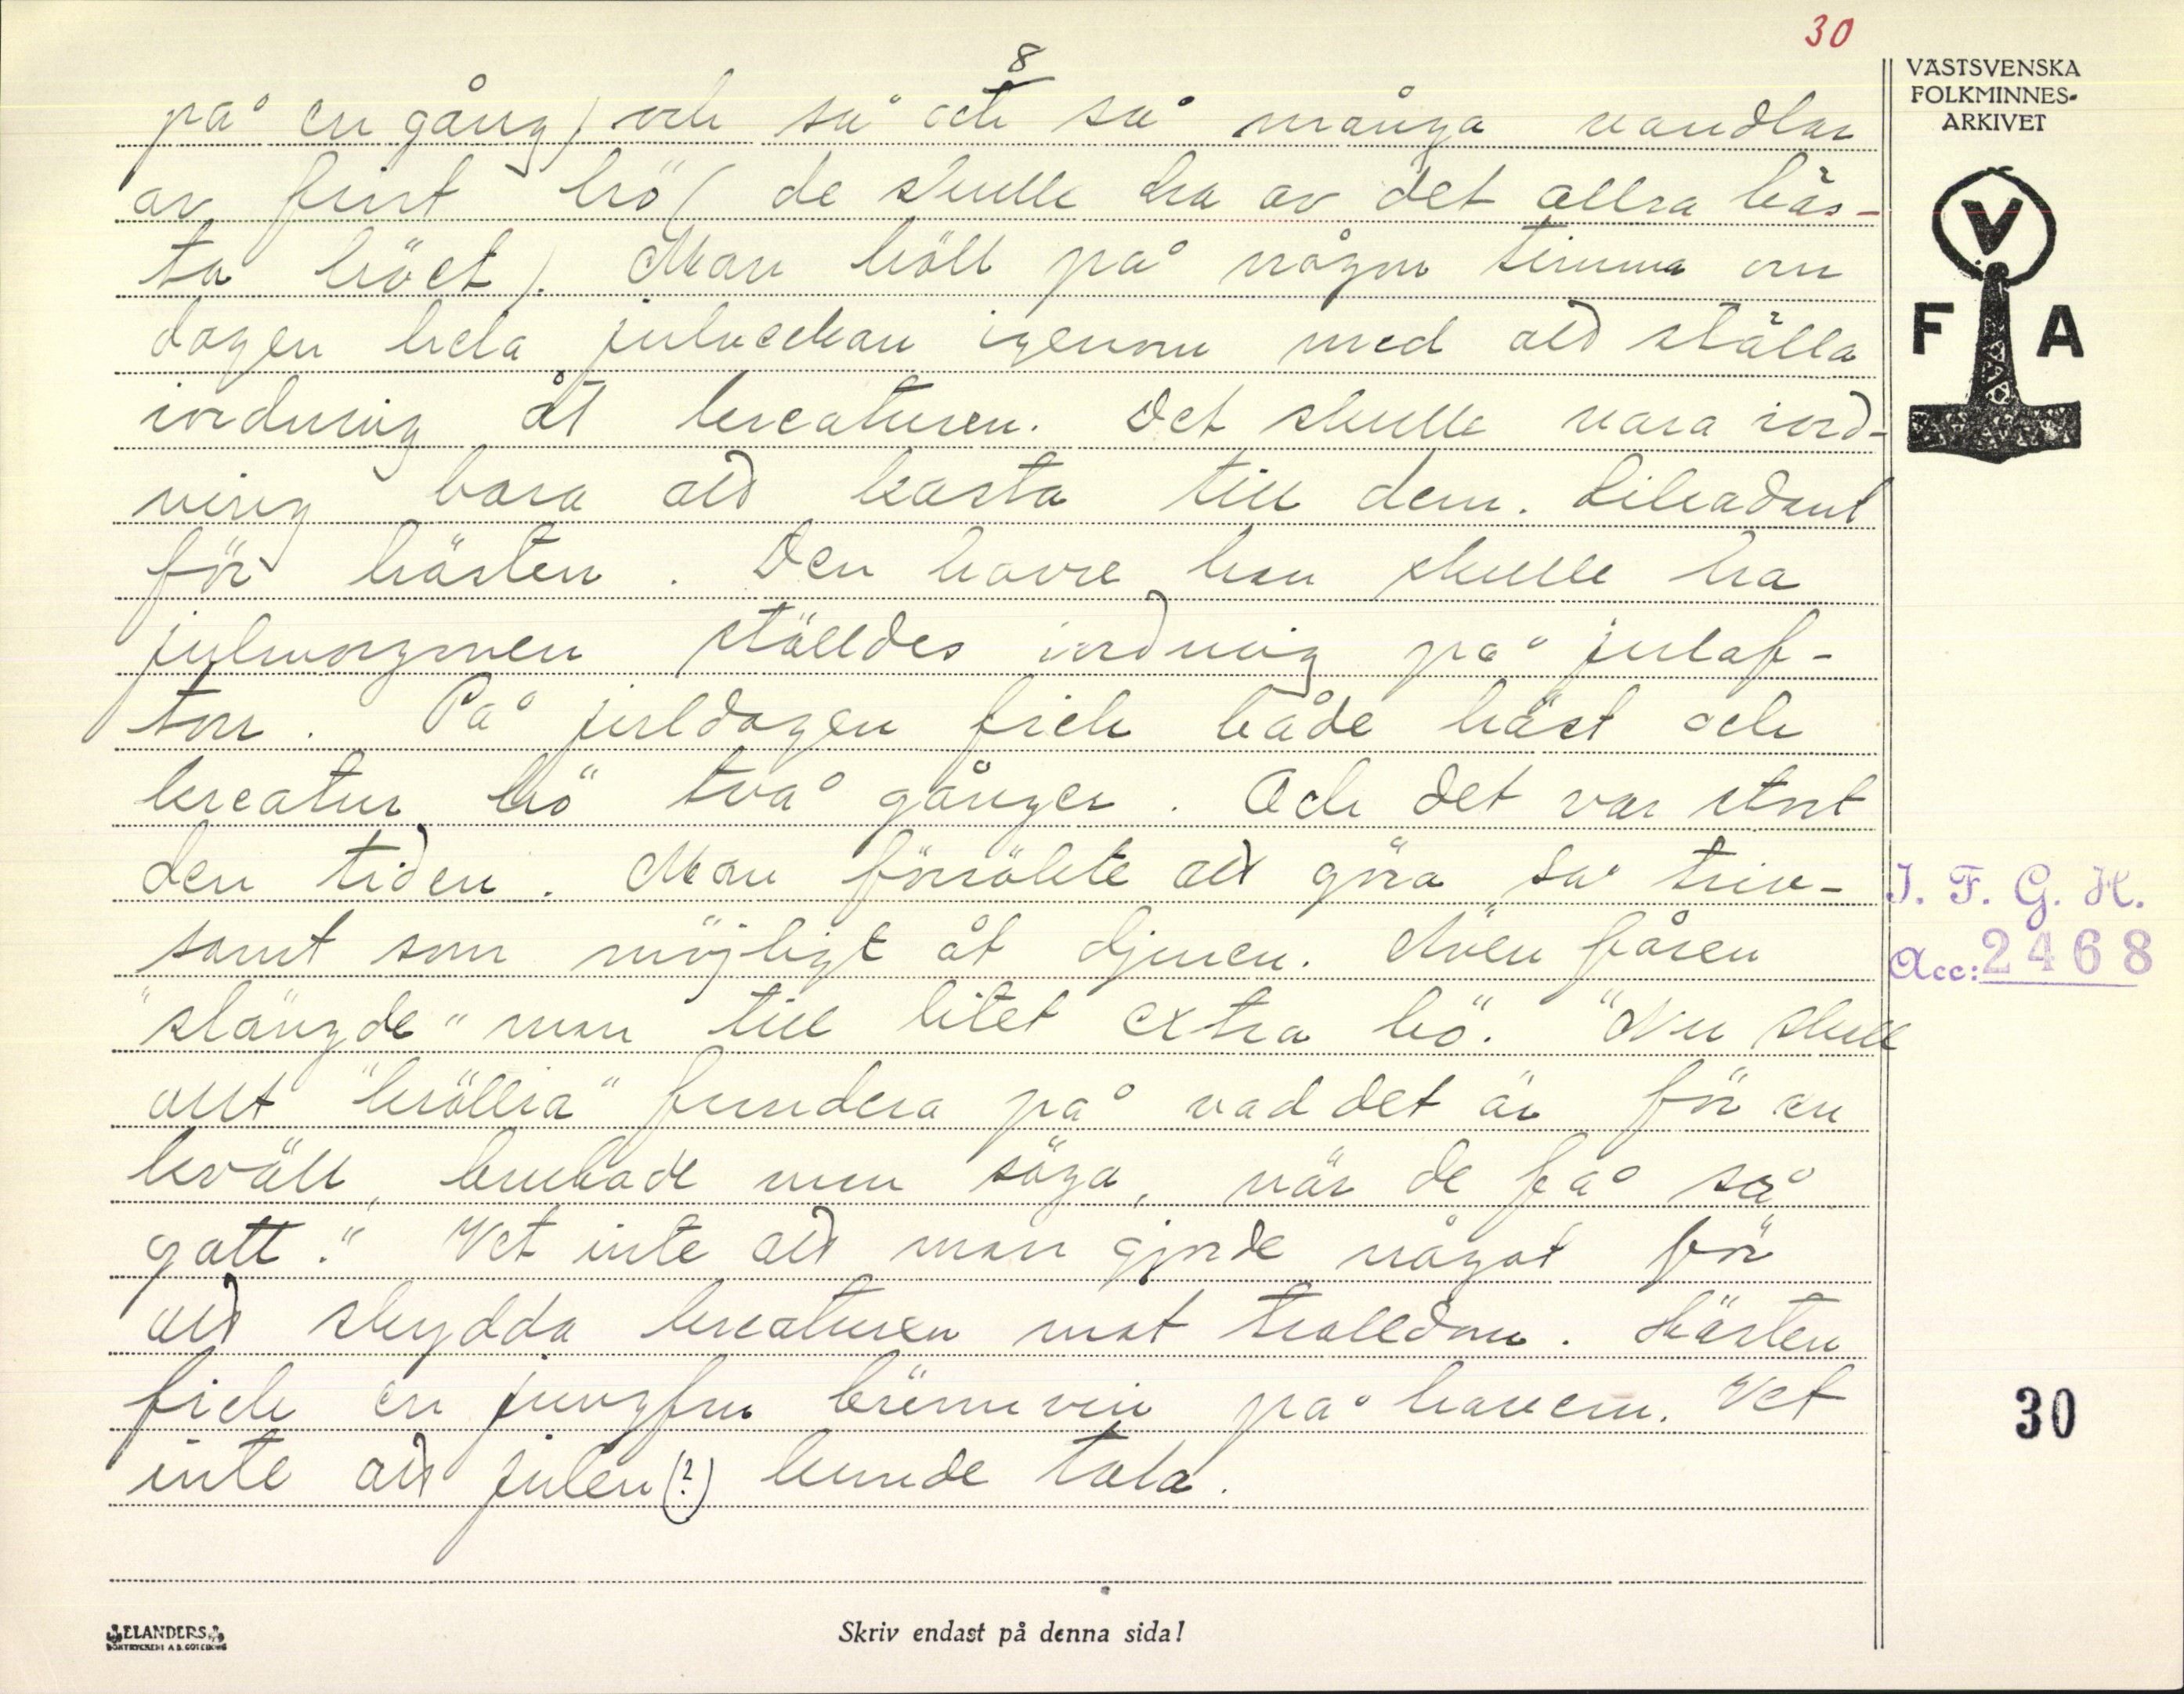 30
8
på en gång) och så och så många vandlar
av fint hö (de skulle ha av det allra bäs-
ta höet). Man höll på någon timma om
dagen hela julveckan igenom med att ställa
iordning åt kreaturen. Det skulle vara iord-
ning bara att kasta till dem. Likadant
för hästen. Den havre han skulle ha
julmorgonen ställdes iordning på julaf-
ton. På juldagen fick både häst och
kreatur hö två gånger. Och det var stort
den tiden. Man försökte att göra så triv-
samt som möjligt åt djuren. Även fåren
"slängde" man till litet extra hö. "Nu skull
allt "kröllra" fundera på vad det är för en
kväll, brukade man säga, när de få så
gott." Vet inte att man gjorde något för
att skydda kreaturen mot trolldom. Hästen
fick en jungfru brännvin på havern. Vet
inte att julen(?) kunde tala.
VÄSTSVENSKA
FOLKMINNES-
ARKIVET
V
F A
I. F. G. H.
Acc: 2468
30
ELANDERS
BOKTRYCKERI A.B. GÖTEBORG
Skriv endast på denna sida!